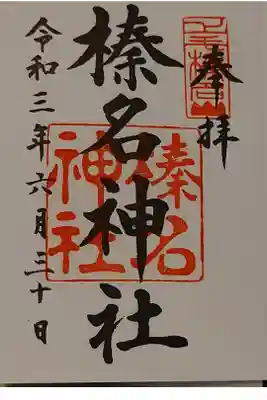 奉拝
榛名神社
令和三年六月三十日
榛名
神社